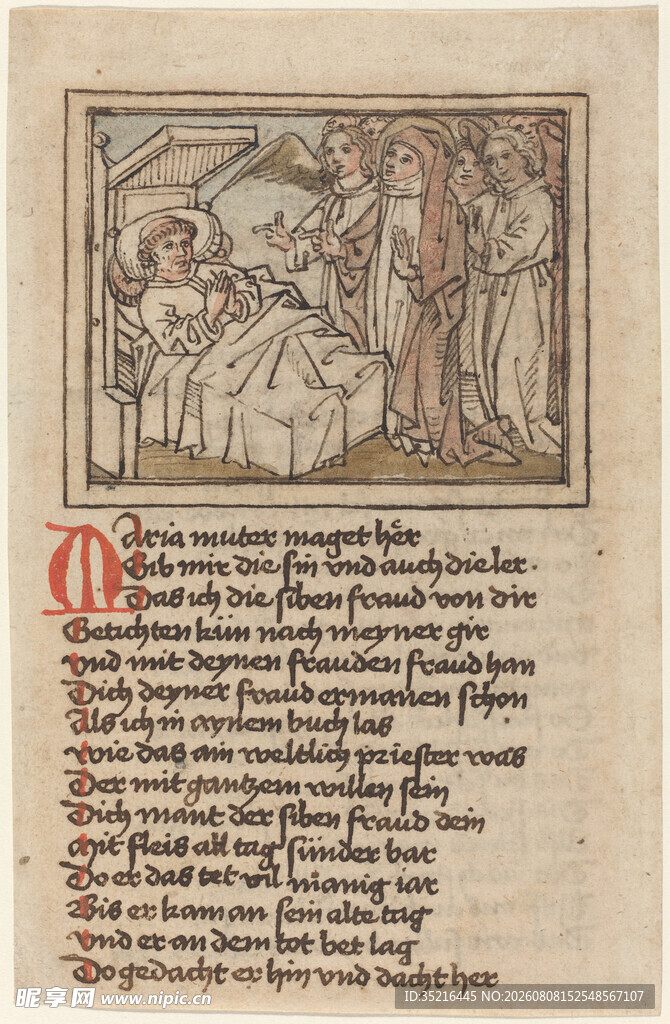 Maria muter maget her
Gib mir die sin vnd auch die ler.
Das ich die siben fraud von dir
Getichten kün nach meyner gir
vnd mit deynen frauden fraud han
Dich deyner fraud ermanen schon
Als ich in aynem buch las
wie das ain weltlich priester was
Der mit gantzem willen sein
Dich mant der siben fraud dein
Mit fleis all tag sünder bar
Do er das tet vil manig iar
Bis er kam an sein alte tag
vnd er an dem tot bet lag
Do gedacht er hin vnd dacht her
昵享网 www.nipic.cn
ID:35216445 NO:20260808152548567107